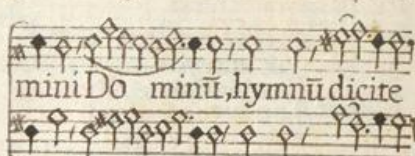 mini Do minū, hymnū dicite